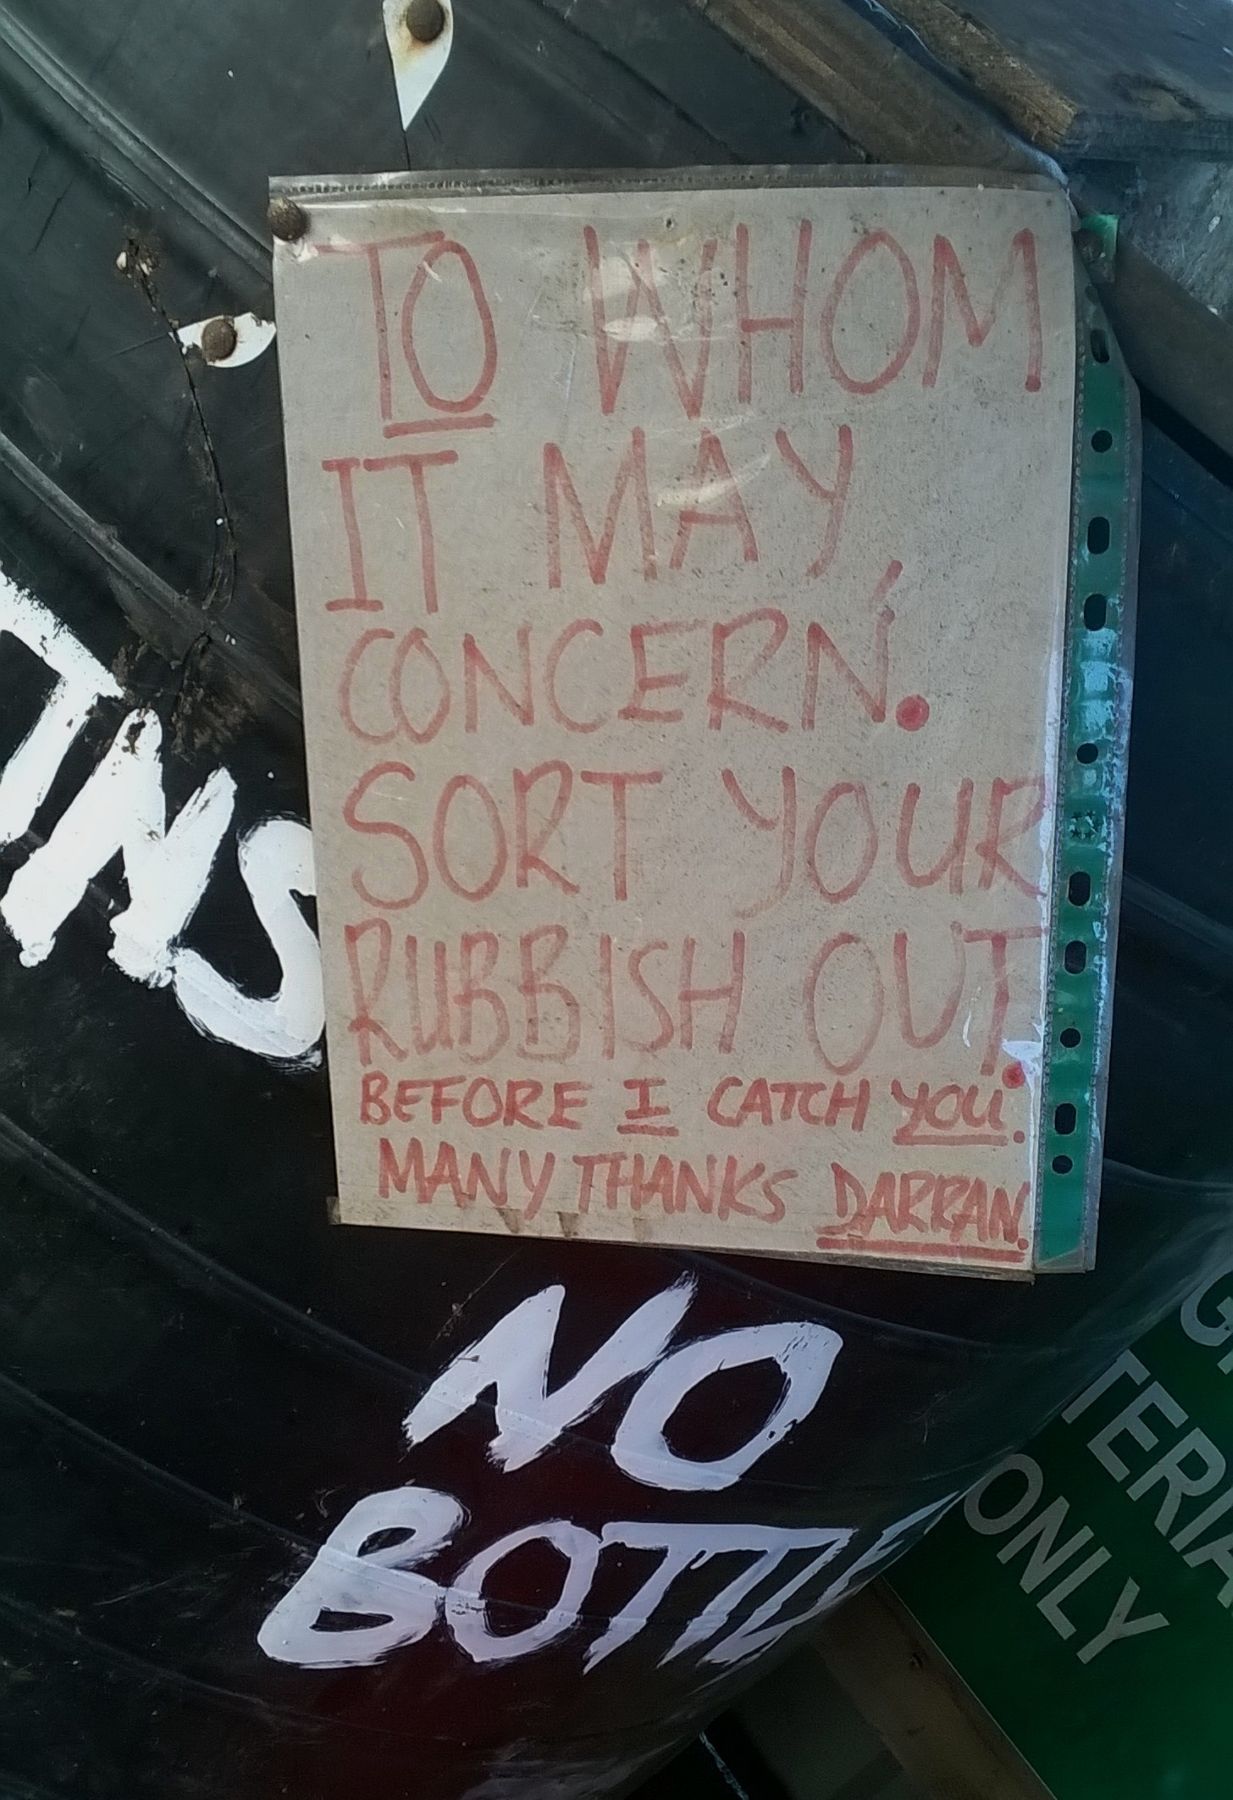 TO WHOM
IT MAY,
CONCERN.
SORT YOUR
RUBBISH OUT.
BEFORE I CATCH YOU.
MANY THANKS DARRAN.
NO
ONLY